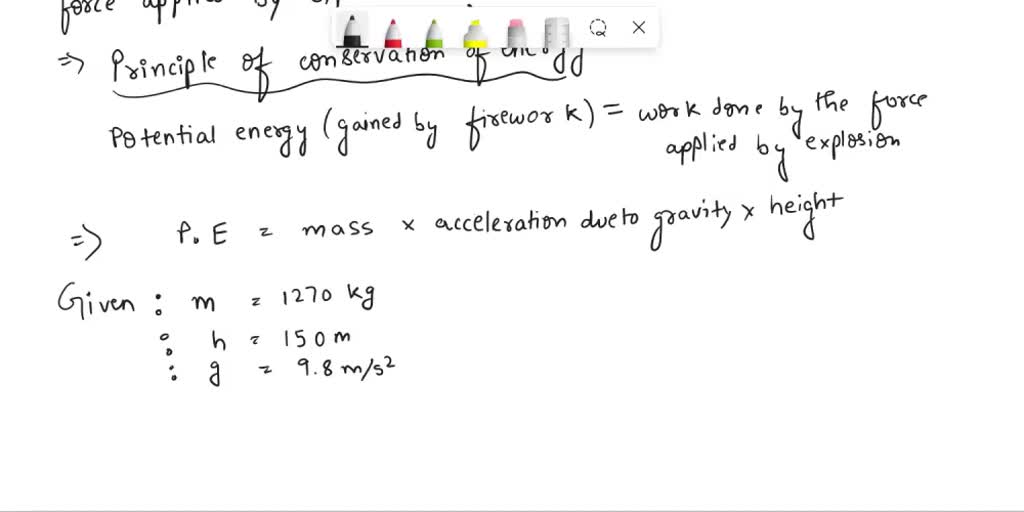 force applied by
⇒ Principle of conservation of energy
Potential energy (gained by firework) = work done by the force
applied by explosion
⇒ P.E = mass × acceleration due to gravity × height
Given : m = 1270 kg
: h = 150 m
: g = 9.8 m/s²